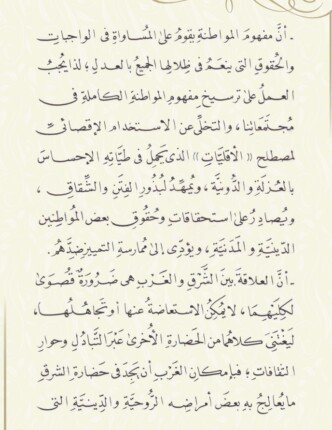 ـ أنَّ مفهومَ المواطنةِ يقومُ على المُساواةِ في الواجباتِ
والحُقوقِ التي ينعَمُ في ظِلالِها الجميعُ بالعدلِ؛ لذا يَجِبُ
العملُ على ترسيخِ مفهومِ المواطنةِ الكاملةِ في
مُجتَمَعاتِنا، والتخلِّي عن الاستخدام الإقصائيِّ
لمصطلح «الأقليَّاتِ» الذي يَحمِلُ في طيَّاتِهِ الإحساسَ
بالعُزْلَةِ والدُّونيَّة، ويُمهِّدُ لبُذُورِ الفِتَنِ والشِّقاقِ،
ويُصادِرُ على استحقاقاتِ وحُقُوقِ بعض المُواطِنين
الدِّينيَّةِ والمَدَنيَّةِ، ويُؤدِّي إلى مُمارسةِ التمييز ضِدَّهُم.
ـ أنَّ العلاقةَ بينَ الشَّرْقِ والغَرْبِ هي ضَرُورةٌ قُصوَى
لكِلَيْهِمَا، لا يُمكِنُ الاستعاضةُ عنها أو تَجاهُلُها،
ليَغْتَنِيَ كلاهُما من الحَضارةِ الأُخرى عَبْرَ التَّبادُلِ وحوارِ
الثقافاتِ؛ فبإمكانِ الغَرْبِ أن يَجِدَ في حَضارةِ الشرقِ
ما يُعالِجُ به بعضَ أمراضِه الرُّوحيَّةِ والدِّينيَّةِ التي